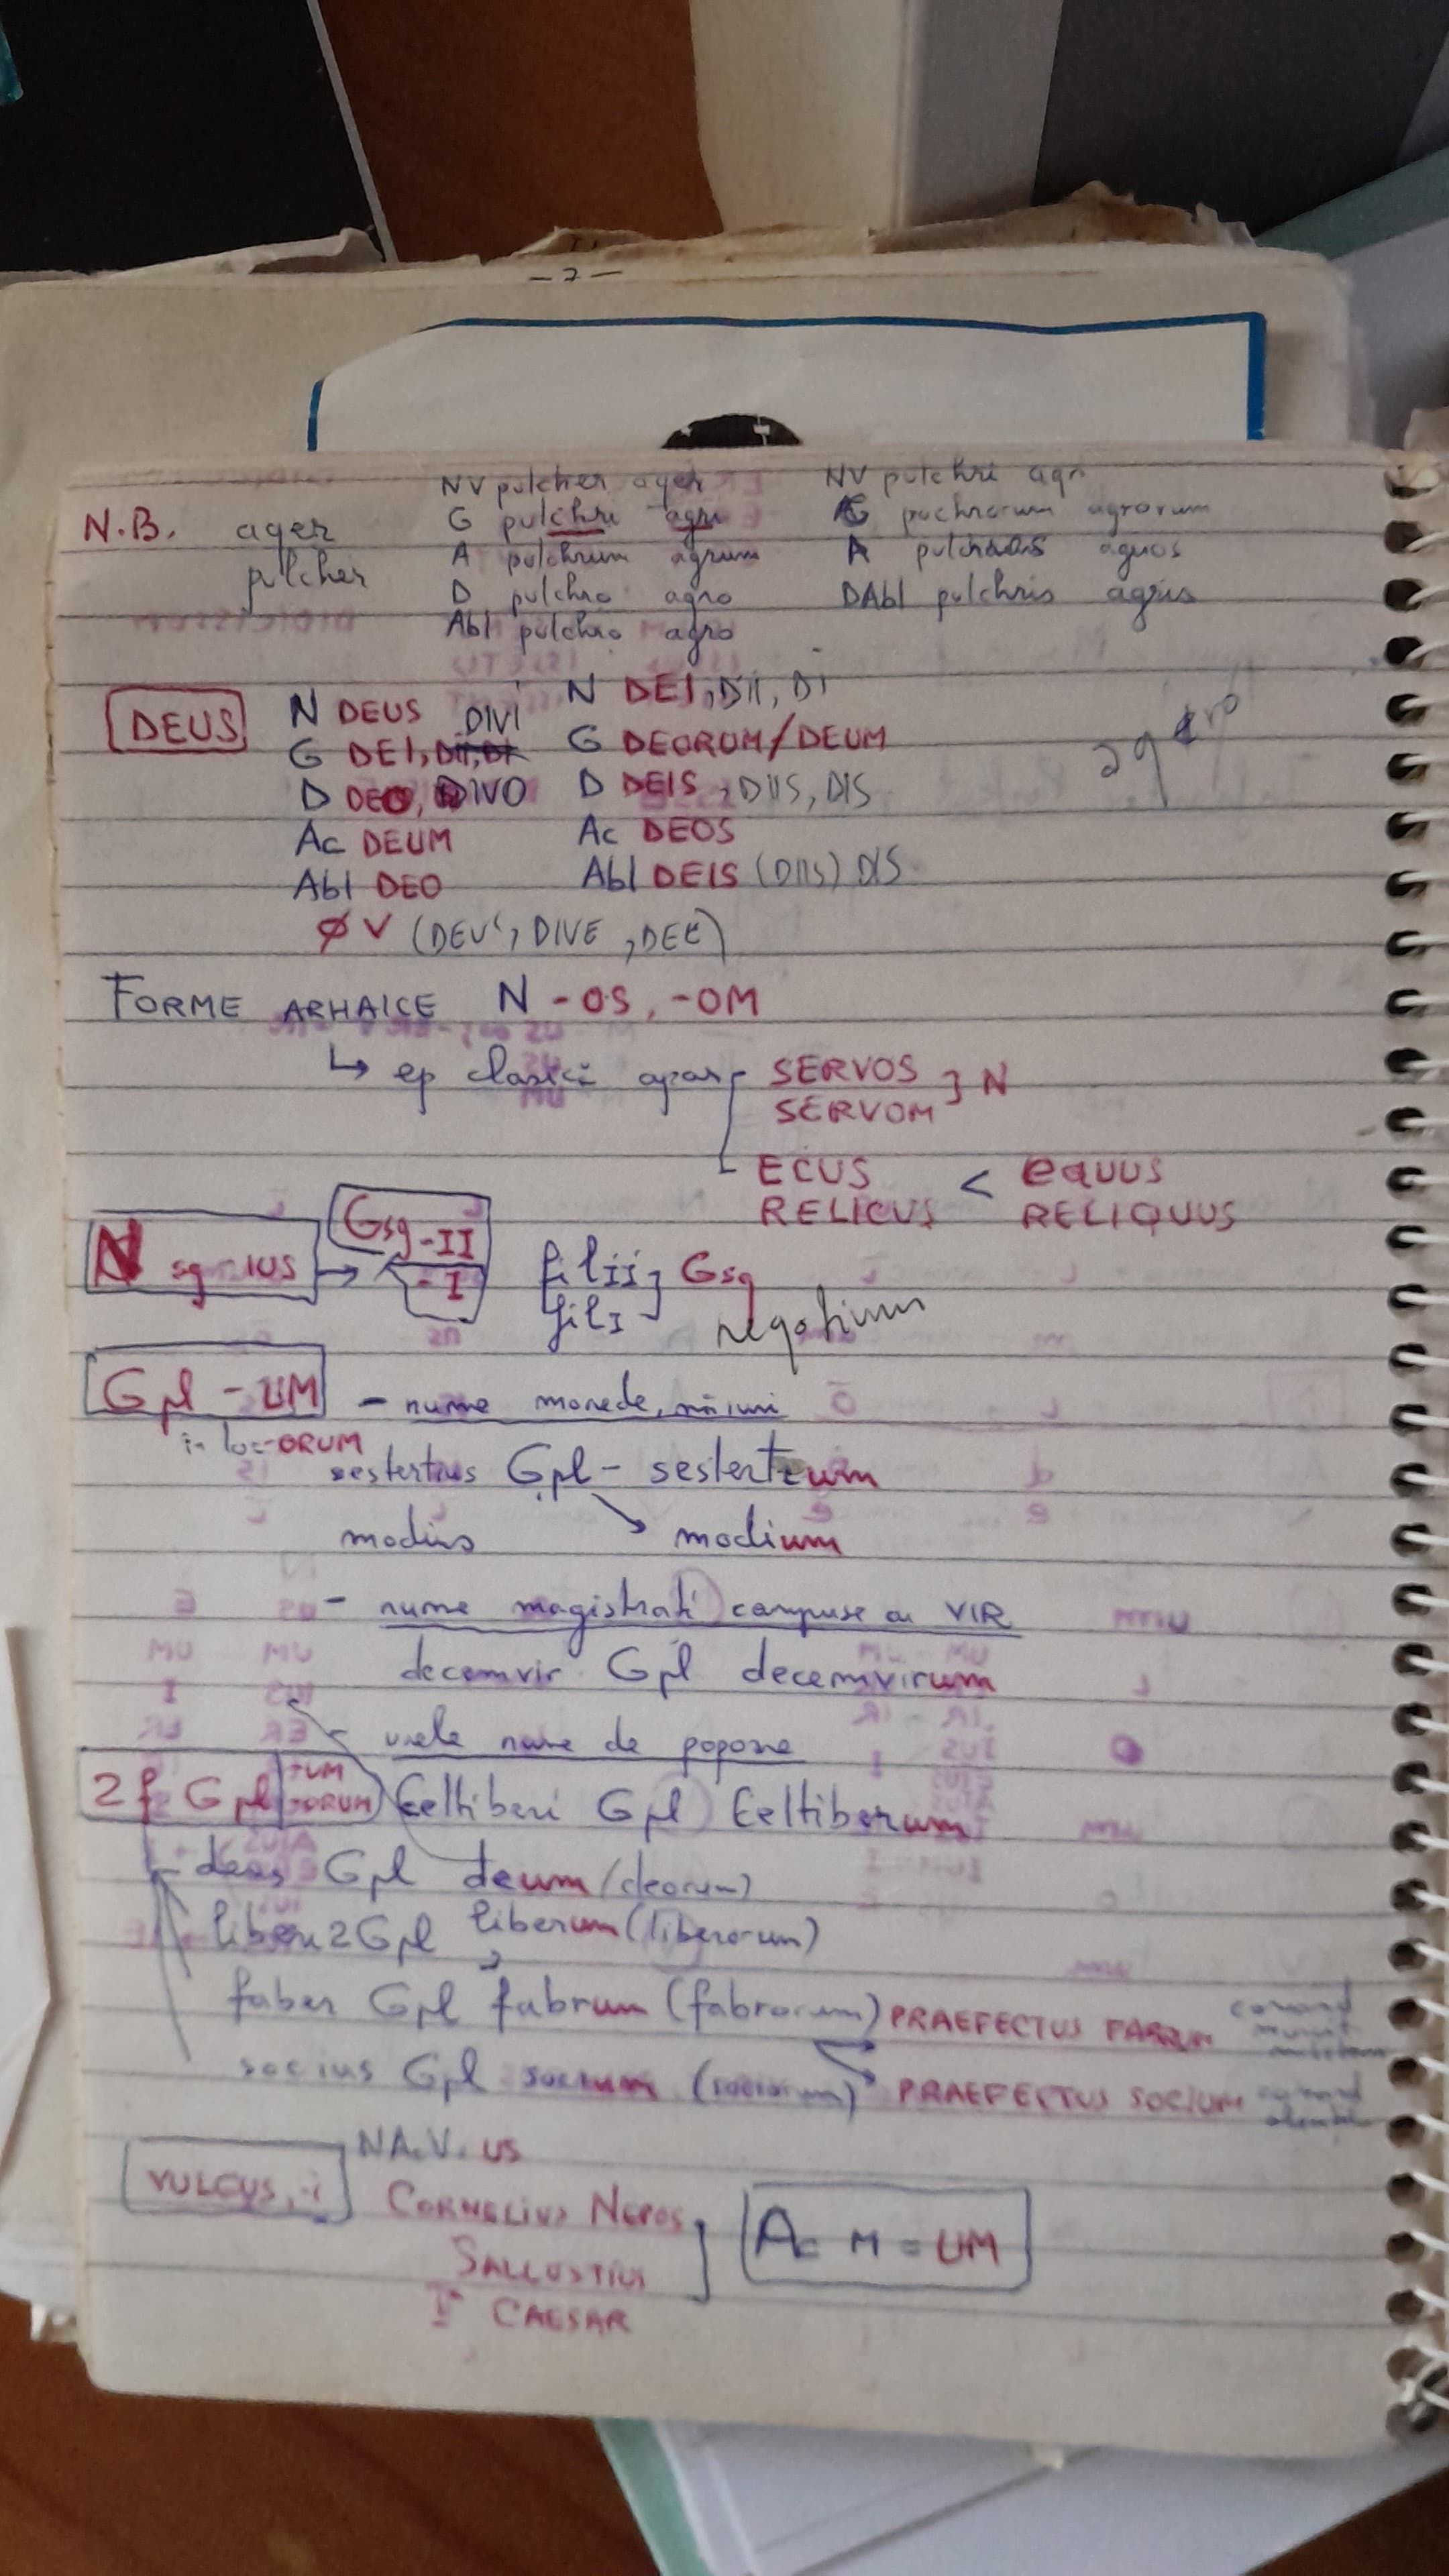 - 7 -
N.B. ager
pulcher
NV pulcher ager
G pulchri agri
A pulchrum agrum
D pulchro agro
Abl pulchro agro
NV pulchri agri
G puchrorum agrorum
A pulchros agros
DAbl pulchris agris
DEUS
N DEUS
G DEI, DII, DI DIVI
D DEO, DIVO
Ac DEUM
Abl DEO
N DEI, DII, DI
G DEORUM/DEUM
D DEIS, DIIS, DIS
Ac DEOS
Abl DEIS (DIIS) DIS
Ø V (DEUS, DIVE, DEE)
FORME ARHAICE N -OS, -OM
↳ ep clasică apar SERVOS } N
SERVOM
ECUS < EQUUS
RELICUS RELIQUUS
N sg -IUS → Gsg -II
-I
filii } Gsg
fili
negotium
Gpl -UM - nume monede, măsuri
în loc -ORUM
sestertius Gpl - sestertium
modius modium
- nume magistrați compuse cu VIR
decemvir Gpl decemvirum
- unele nume de popoare
2 f Gpl -UM
-ORUM
Celtiberi Gpl Celtiberum
- deus Gpl deum/(deorum)
liberi 2 Gpl liberum (liberorum)
faber Gpl fabrum (fabrorum) PRAEFECTUS FABRUM comand
socius Gpl socium (sociorum) PRAEFECTUS SOCIUM comand
VULGUS, -i
NA.V. US
CORNELIUS NEPOS
SALLUSTIUS
CAESAR
Ac M = UM